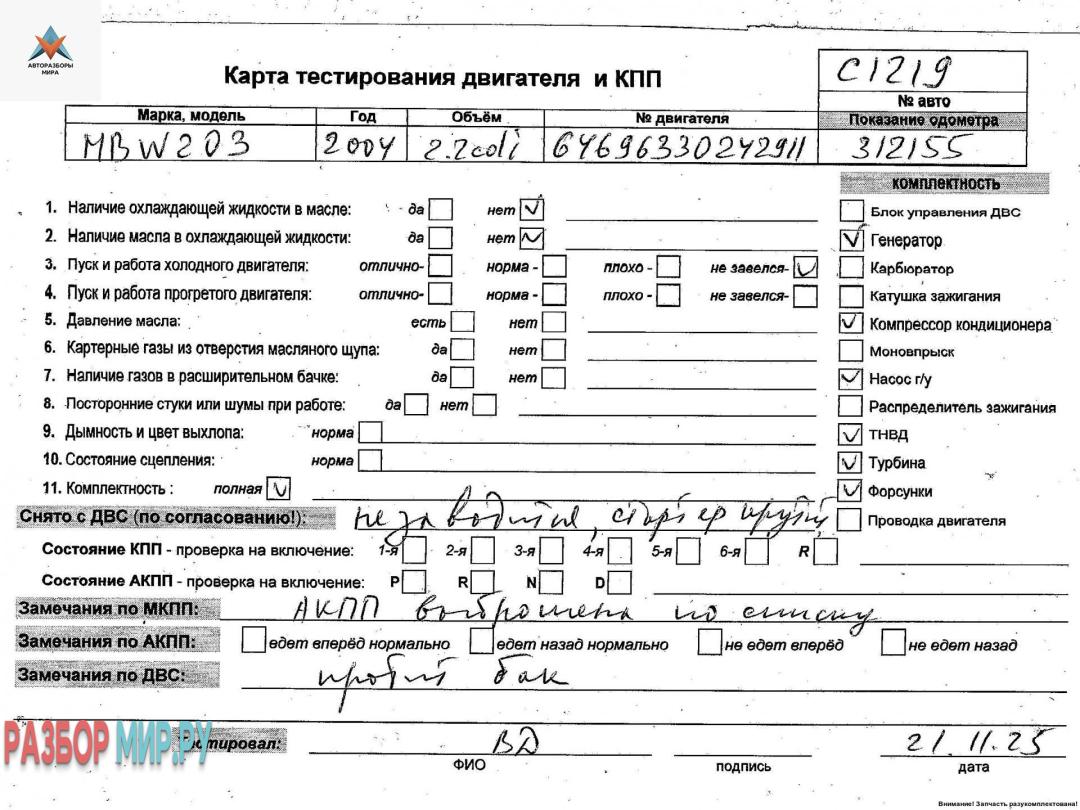 АВТОРАЗБОРЫ
МИРА
Карта тестирования двигателя и КПП
C1219
№ авто
Марка, модель Год Объём № двигателя Показание одометра
MB W203 2004 2.2cdi 64696330242911 312155
комплектность
1. Наличие охлаждающей жидкости в масле: да нет
Блок управления ДВС
2. Наличие масла в охлаждающей жидкости: да нет
Генератор
3. Пуск и работа холодного двигателя: отлично- норма - плохо - не завелся-
Карбюратор
4. Пуск и работа прогретого двигателя: отлично- норма - плохо - не завелся-
Катушка зажигания
5. Давление масла: есть нет
Компрессор кондиционера
6. Картерные газы из отверстия масляного щупа: да нет
Моновпрыск
7. Наличие газов в расширительном бачке: да нет
Насос г/у
8. Посторонние стуки или шумы при работе: да нет
Распределитель зажигания
9. Дымность и цвет выхлопа: норма
ТНВД
10. Состояние сцепления: норма
Турбина
11. Комплектность : полная
Форсунки
Снято с ДВС (по согласованию!): не заводится, стартер крутит
Проводка двигателя
Состояние КПП - проверка на включение: 1-я 2-я 3-я 4-я 5-я 6-я R
Состояние АКПП - проверка на включение: P R N D
Замечания по МКПП: АКПП выброшена по списку
Замечания по АКПП: едет вперёд нормально едет назад нормально не едет вперёд не едет назад
Замечания по ДВС: пробит бак
РАЗБОР МИР.РУ
Тестировал: ВД 21.11.25
ФИО подпись дата
Внимание! Запчасть разукомплектована!